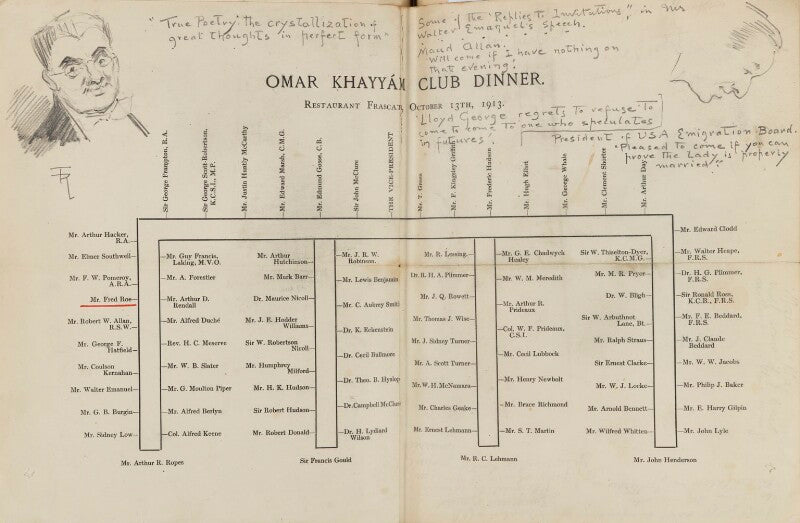 "True Poetry" the crystallization of
great thoughts in perfect form"
Some of the "Replies To Invitations", in Mr
Walter Emanuel's Speech.
Maud Allan.
Will come if I have nothing on
that evening!
OMAR KHAYYÁM CLUB DINNER.
RESTAURANT FRASCATI, OCTOBER 13TH, 1913.
Lloyd George regrets to refuse to
come to one who speculates
in futures'.
President of USA Emigration Board.
"Pleased to come if you can
prove the Lady is properly
married"
Sir George Frampton, R.A.
Sir George Scott-Robertson,
K.C.S.I., M.P.
Mr. Justin Huntly McCarthy
Mr. Edward Marsh, C.M.G.
Mr. Edmund Gosse, C.B.
Sir John McClure
THE VICE-PRESIDENT
Mr. T. Gosse
Mr. F. Kingsley Griffith
Mr. Frederic Hudson
Mr. Hugh Elliot
Mr. George Whale
Mr. Clement Shorter
Mr. Arthur
Mr. Arthur Hacker,
R.A.
Mr. Elmer Southwell
Mr. F. W. Pomeroy,
A.R.A.
Mr. Fred Roe
Mr. Robert W. Allan,
R.S.W.
Mr. George F.
Hatfield
Mr. Coulson
Kernahan
Mr. Walter Emanuel
Mr. G. B. Burgin
Mr. Sidney Low
Mr. Guy Francis,
Laking, M.V.O.
Mr. A. Forestier
Mr. Arthur D.
Rendall
Mr. Alfred Duché
Rev. H. C. Meserve
Mr. W. B. Slater
Mr. G. Moulton Piper
Mr. Alfred Berlyn
Col. Alfred Keene
Mr. Arthur
Hutchinson
Mr. Mark Barr
Dr. Maurice Nicoll
Mr. J. E. Hodder
Williams
Sir W. Robertson
Nicoll
Mr. Humphrey
Milford
Mr. H. K. Hudson
Sir Robert Hudson
Mr. Robert Donald
Mr. J. R. W.
Robinson
Mr. Lewis Benjamin
Mr. C. Aubrey Smith
Dr. K. Eckenstein
Mr. Cecil Bullmore
Dr. Theo. B. Hyslop
Dr. Campbell McClure
Dr. H. Lydiard
Wilson
Mr. R. Lessing
Dr. R. H. A. Plimmer
Mr. J. Q. Rowett
Mr. Thomas J. Wise
Mr. J. Sidney Turner
Mr. A. Scott Turner
Mr. W. H. McNamara
Mr. Charles Geake
Mr. Ernest Lehmann
Mr. G. E. Chadwyck
Healey
Mr. W. M. Meredith
Mr. Arthur R.
Prideaux
Col. W. F. Prideaux,
C.S.I.
Mr. Cecil Lubbock
Mr. Henry Newbolt
Mr. Bruce Richmond
Mr. S. T. Martin
Sir W. Thiselton-Dyer,
K.C.M.G.
Mr. M. R. Pryor
Dr. W. Bligh
Sir W. Arbuthnot
Lane, Bt.
Mr. Ralph Straus
Sir Ernest Clarke
Mr. W. J. Locke
Mr. Arnold Bennett
Mr. Wilfred Whitten
Mr. Edward Clodd
Mr. Walter Heape,
F.R.S.
Dr. H. G. Plimmer,
F.R.S.
Sir Ronald Ross,
K.C.B., F.R.S.
Mr. F. E. Beddard,
F.R.S.
Mr. J. Claude
Beddard
Mr. W. W. Jacobs
Mr. Philip J. Baker
Mr. E. Harry Gilpin
Mr. John Lyle
Mr. Arthur R. Ropes
Sir Francis Gould
Mr. R. C. Lehmann
Mr. John Henderson